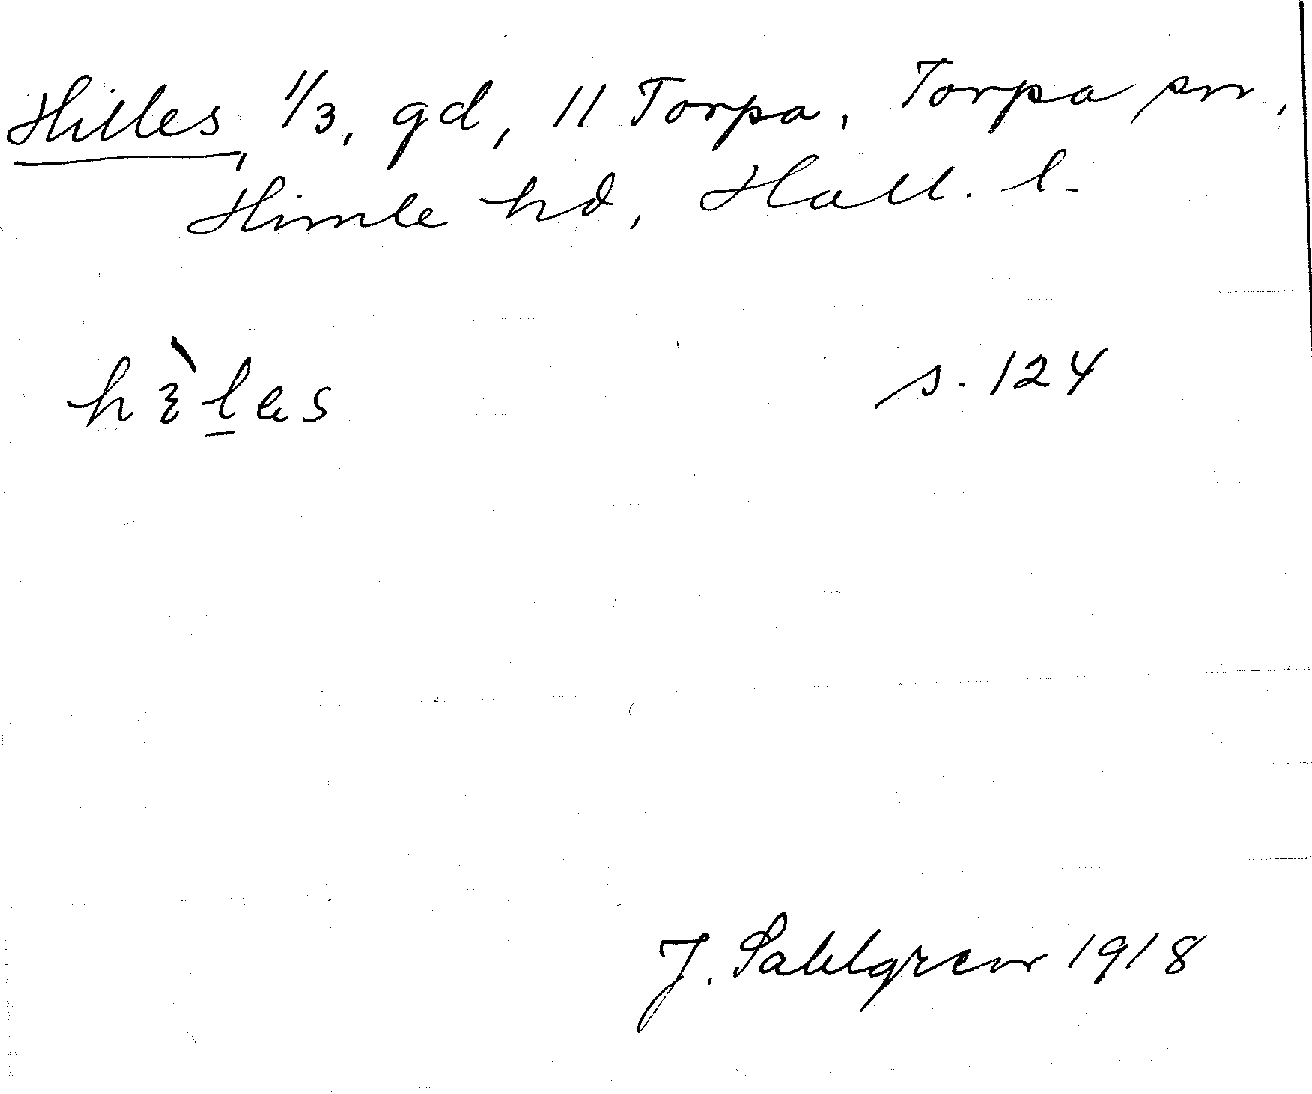 Hilles, 1/3, gd, 11 Torpa, Torpa sn,
Himle hd, Hall. l.
s. 124
J. Sahlgren 1918